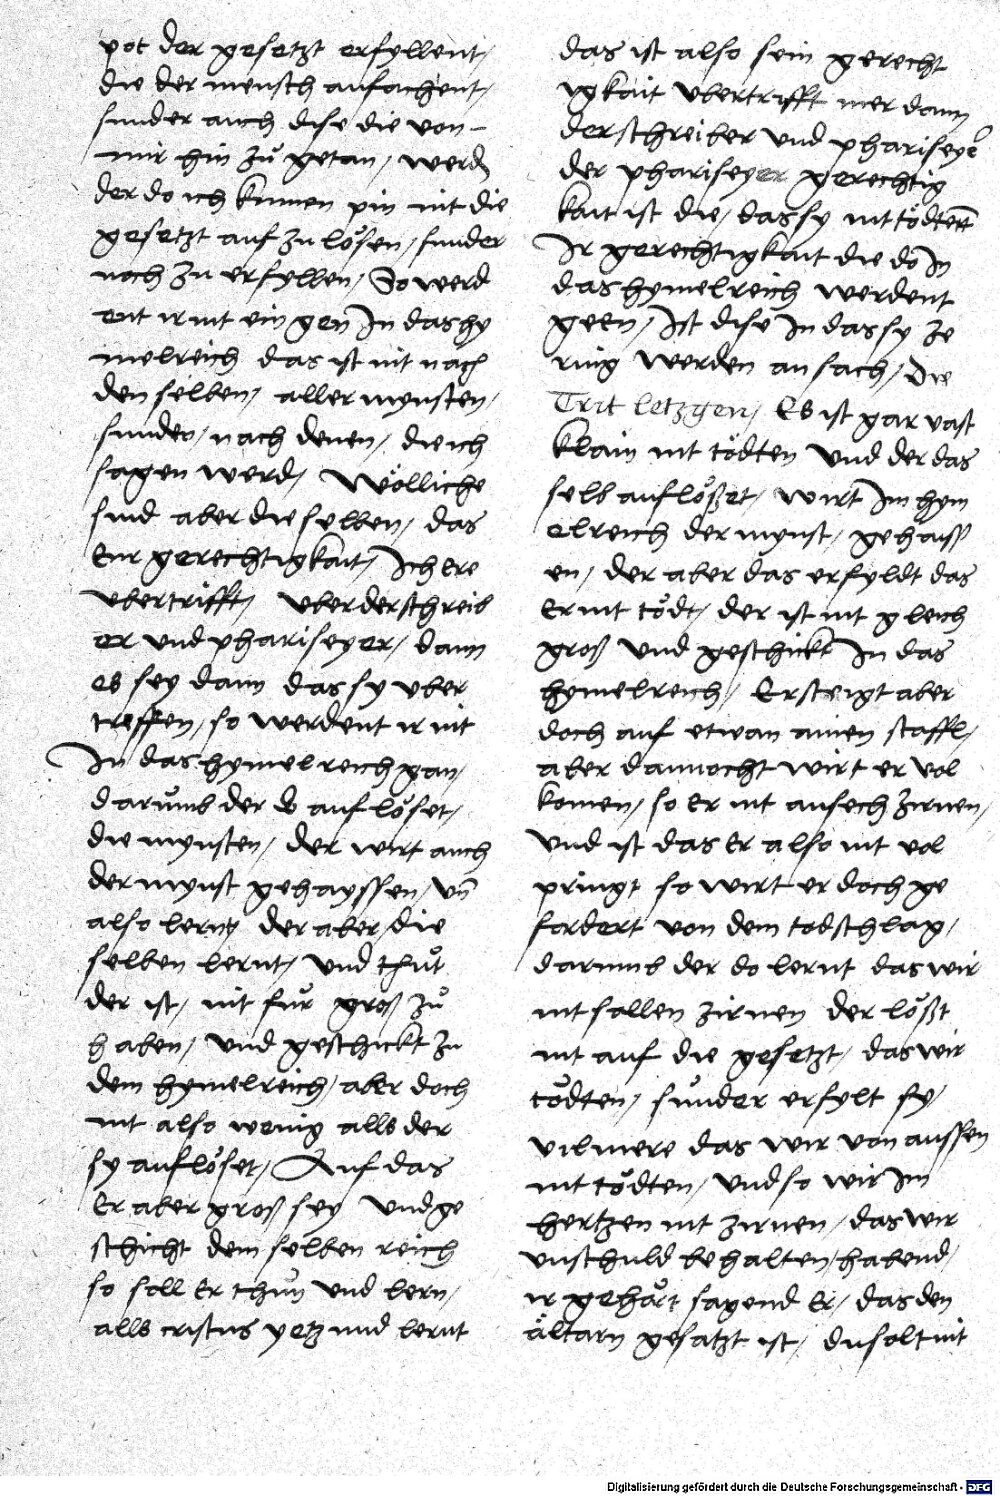 pot der gesetzt erfyllent/
die der mensch anfachent/
sunder auch dise die von-
mir hin zů getan/ werd
der do ich kumen pin nit die
gesetzt auf zu lösen/ sunder
noch zu erfyllen/ So werd
ent ir nit ein gen̄ In das hy
melreich das ist nit nach
den selben/ aller mynsten/
sunder/ nach denen/ die ich
sagen werd/ Wölliche
sind aber die selben/ das
Eur gerechtigkait/ Ich Ere
ubertrifft/ uber der schreib
er und phariseyer/ dann
es sey dann das sy uber
treffen/ so werdent ir nit
In das hymelreich gan/
darumb der do auflöset/
die mynsten/ der wirt auch
der mynst gehayssen/ vn̄
also lernt der aber/ die
selben lernt/ und thůt
der ist/ nit für groß zů
haben/ und geschickt zu
dem hymelreich/ aber doch
nit also wenig alls der
sy auflöset/ Auf das
Er aber groß sey und ge
schicht dem selben reich
so soll Er thun und lern/
alls cristus yetz und lernt
das ist also sein gerecht
igkait ubertrifft mer dann
der schreiber und phariseyer
der phariseyer gerechtig
kait ist die/ das sy nit tödtent
Ir gerechtigkait die do In
das hymelreich werdent
geen/ Ist dise In das sy ze
ring werden an fach/ Die
Trit letzgen/ Es ist gar vast
klain nit tödten und der das
selb auflößet/ wirt Im hym
elreich der mynst/ gehaiss
en/ der aber das erfyldt das
Er nit tödt/ der ist nit gleich
groß und geschickt In das
hymelreich/ Er steigt aber
doch auf etwan ainen staffl/
aber dannocht wirt er vol
komen/ so Er nit anfech zirnen/
und ist das Er also nit vol
pringt so wirt er doch ge
fordert von dem todschlag/
darumb der do lernt das wir
nit sollen zirnen der lößt
nit auf die gesetzt/ das wir
tödten/ sunder erfylt sy/
vil mere das wir von aussen
nit tödten/ und so wir Im
hertzen nit zirnen/ das wir
unschuld behalten/ habend/
ir gehört sagend Er/ das den
altarn gesatzt ist/ du solt nit
Digitalisierung gefördert durch die Deutsche Forschungsgemeinschaft - DFG